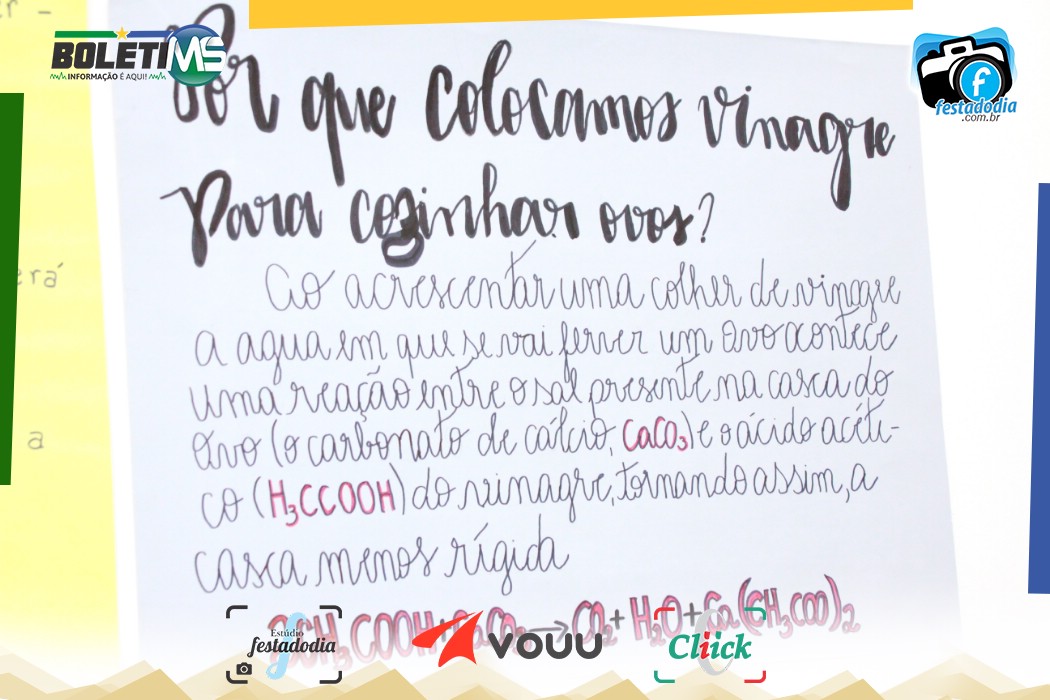 BOLETIMS
INFORMAÇÃO É AQUI!
f
festadodia
.com.br
Por que colocamos vinagre
para cozinhar ovos?
Ao acrescentar uma colher de vinagre
a agua em que se vai ferver um ovo acontece
uma reação entre o sal presente na casca do
ovo (o carbonato de cálcio, CaCO₃) e o ácido acéti-
co (H₃CCOOH) do vinagre, tornando assim, a
casca menos rígida
2CH₃COOH + CaCO₃ → CO₂ + H₂O + Ca(CH₃COO)₂
erá
a
Estúdio
festadodia
VOUU
Cliick